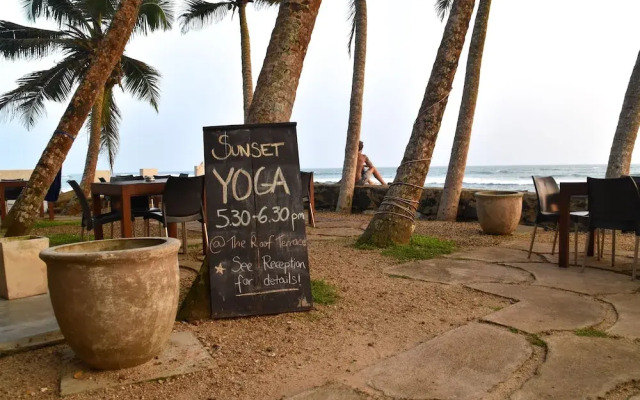 SUNSET
YOGA
5.30-6.30pm
@ The Roof Terrace
★ See Reception
for details!